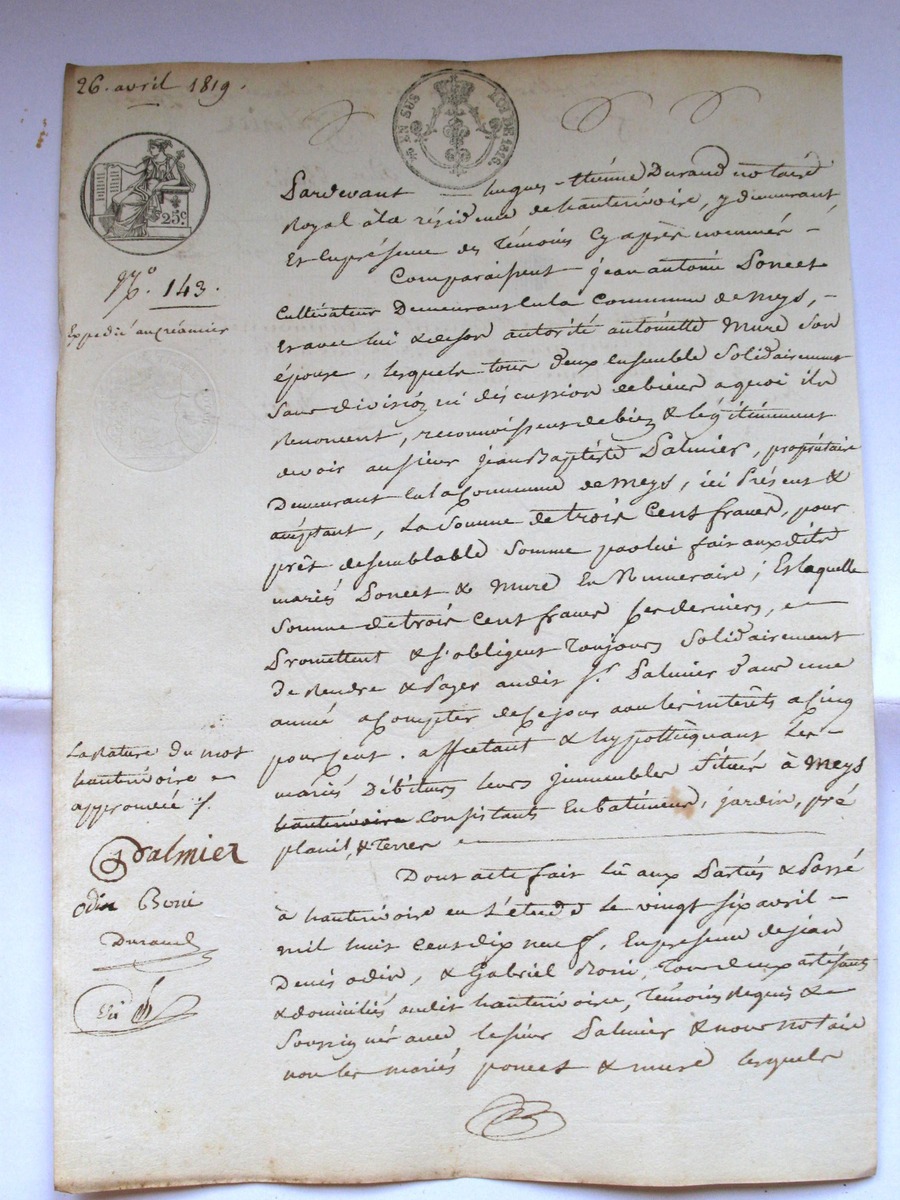 26. avril 1819.
EN SUS
LOI DE 1816.
25c
N.o 143.
Expedié au créancier
Pardevant hugues-étienne Durand notaire
Royal à la résidence de hauterivoire, y demeurant
Et En présence des Témoins Cy après nommés -
Comparaissent jean antoine Poncet
Cultivateur Demeurant En la Commune de Meys, -
Et avec lui & de son autorité antoinette Mure son
épouse, lesquels tous deux Ensemble Solidairement
Sans division ni discussion de biens a quoi ils
Renoncent, reconnoissent de bien & légitimement
devoir au sieur jean Baptiste Palmier, propriétaire
Demeurant En la Commune de Meys, ici Présent &
acceptant, La Somme de trois Cent francs, pour
prêt de semblable Somme par lui fait auxdits
mariés Poncet & Mure En Numeraire; Et laquelle
Somme de trois Cent francs Ces derniers,
Promettent & s'obligent Toujours Solidairement
de Rendre & Payer audit Sr. Palmier Dans une
année a Compter de Ce jour avec les intérêts a Cinq
pour Cent. affectant & hypothéquant Les -
mariés Débiteurs leurs immeubles Situés à Meys
hauterivoire Consistants En batiments, jardin, pré
& Terres
La Rature du mot
hauterivoire
approuvée /.
Palmier
odin Boni
Durand
Dont acte fait lu aux Parties & Passé
à hauterivoire en l'étude Le vingt six avril -
mil huit Cent dix neuf, En présence de jean
Denis odin, & Gabriel Boni, Tous deux artisants
& domiciliés audit hauterivoire, Témoins Requis &
Soussignés avec le sieur Palmier & nous notaire
non les mariés poncet & mure lesquels